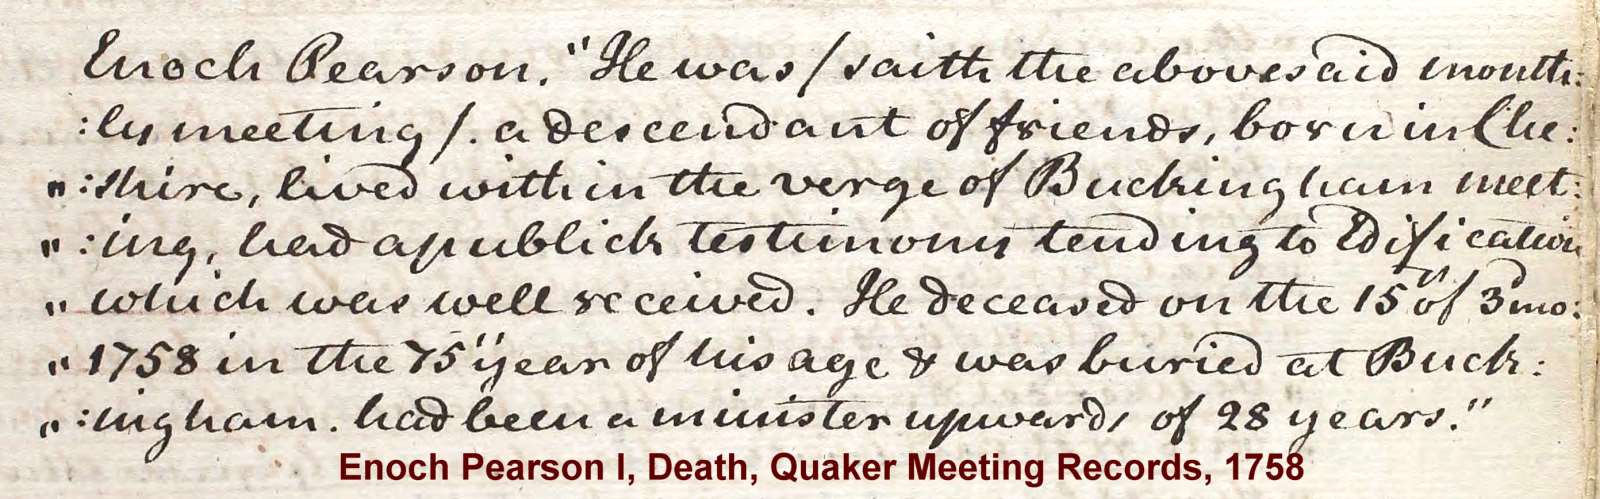 Enoch Pearson. "He was / saith the abovesaid month:
:ly meeting /. a descendant of friends, born in Che:
" :shire, lived within the verge of Buckingham meet:
" :ing, had a publick testimony tending to Edification
" which was well received. He deceased on the 15" of 3d mo:
" 1758 in the 75" year of his age & was buried at Buck:
" :ingham. had been a minister upwards of 28 years."
Enoch Pearson I, Death, Quaker Meeting Records, 1758